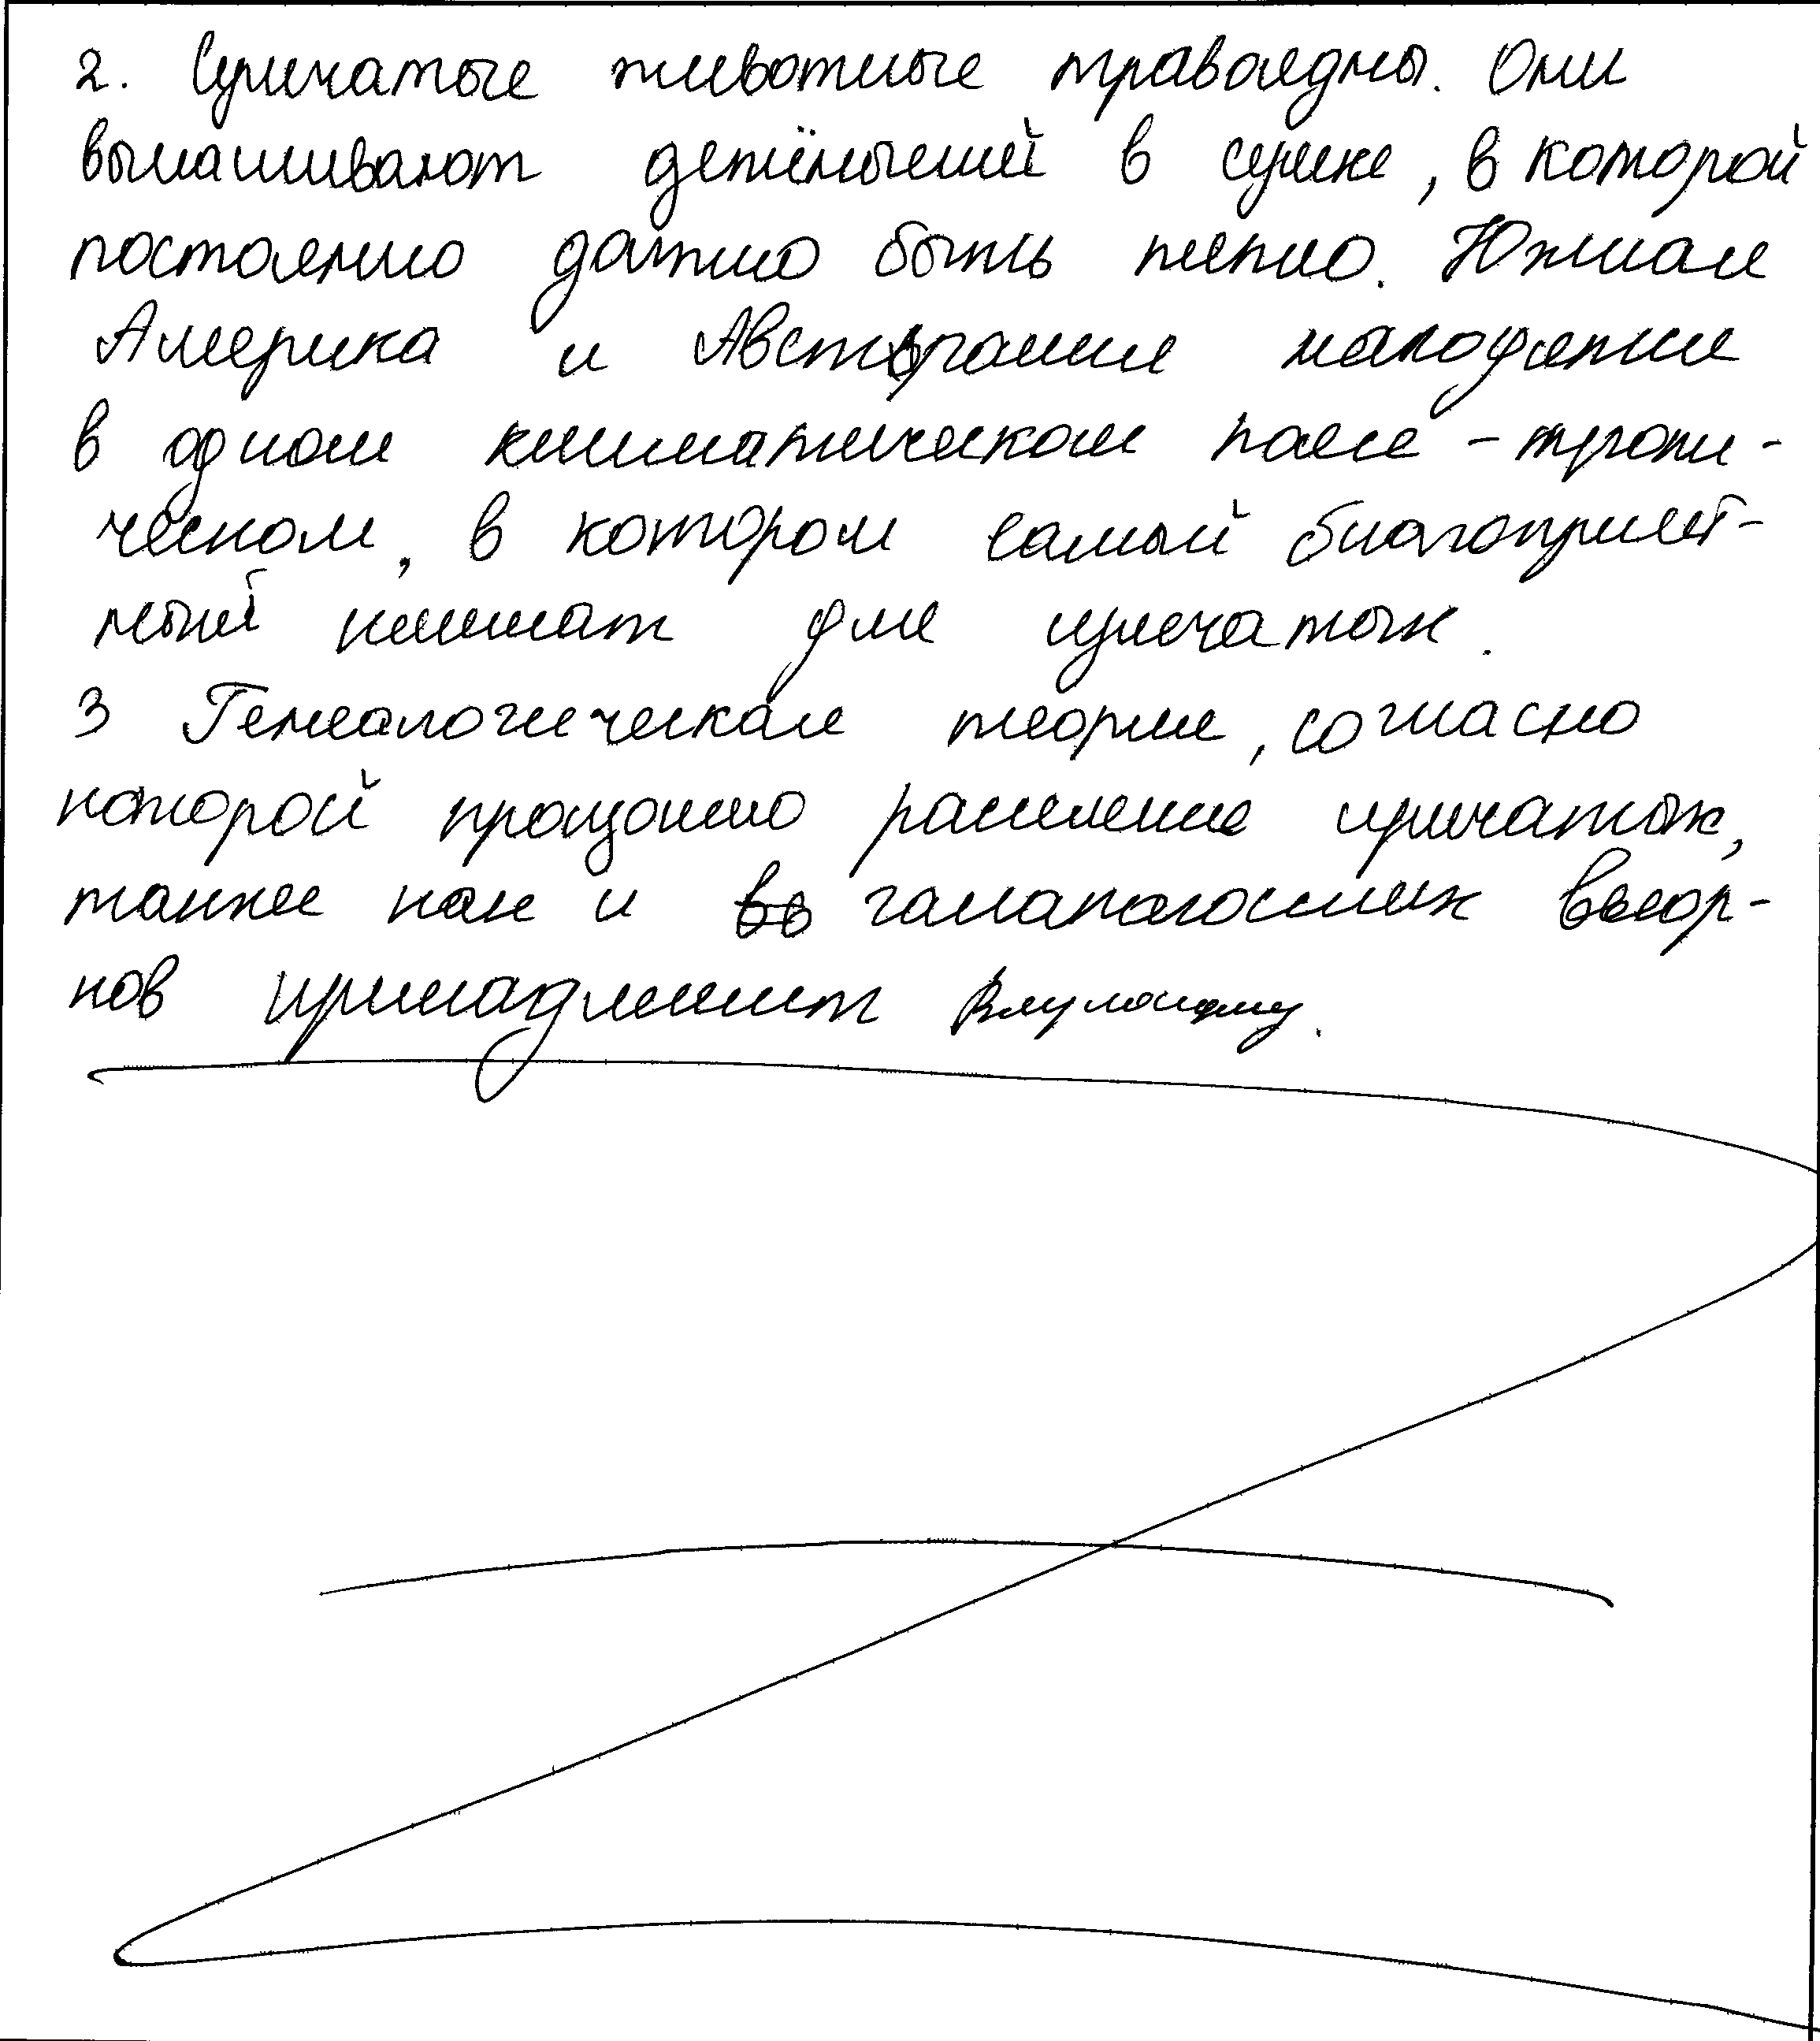 2. Сумчатые животные травоядны. Они
вынашивают детёнышей в сумке, в которой
постоянно должно быть тепло. Южная
Америка и Австралия находятся
в одном климатическом поясе - тропи-
ческом, в котором самый благоприят-
ный климат для сумчатых.
3 Генеалогическая теория, согласно
которой прощошло расселение сумчатых,
также как и галапагосских вьюр-
ков принадлежит